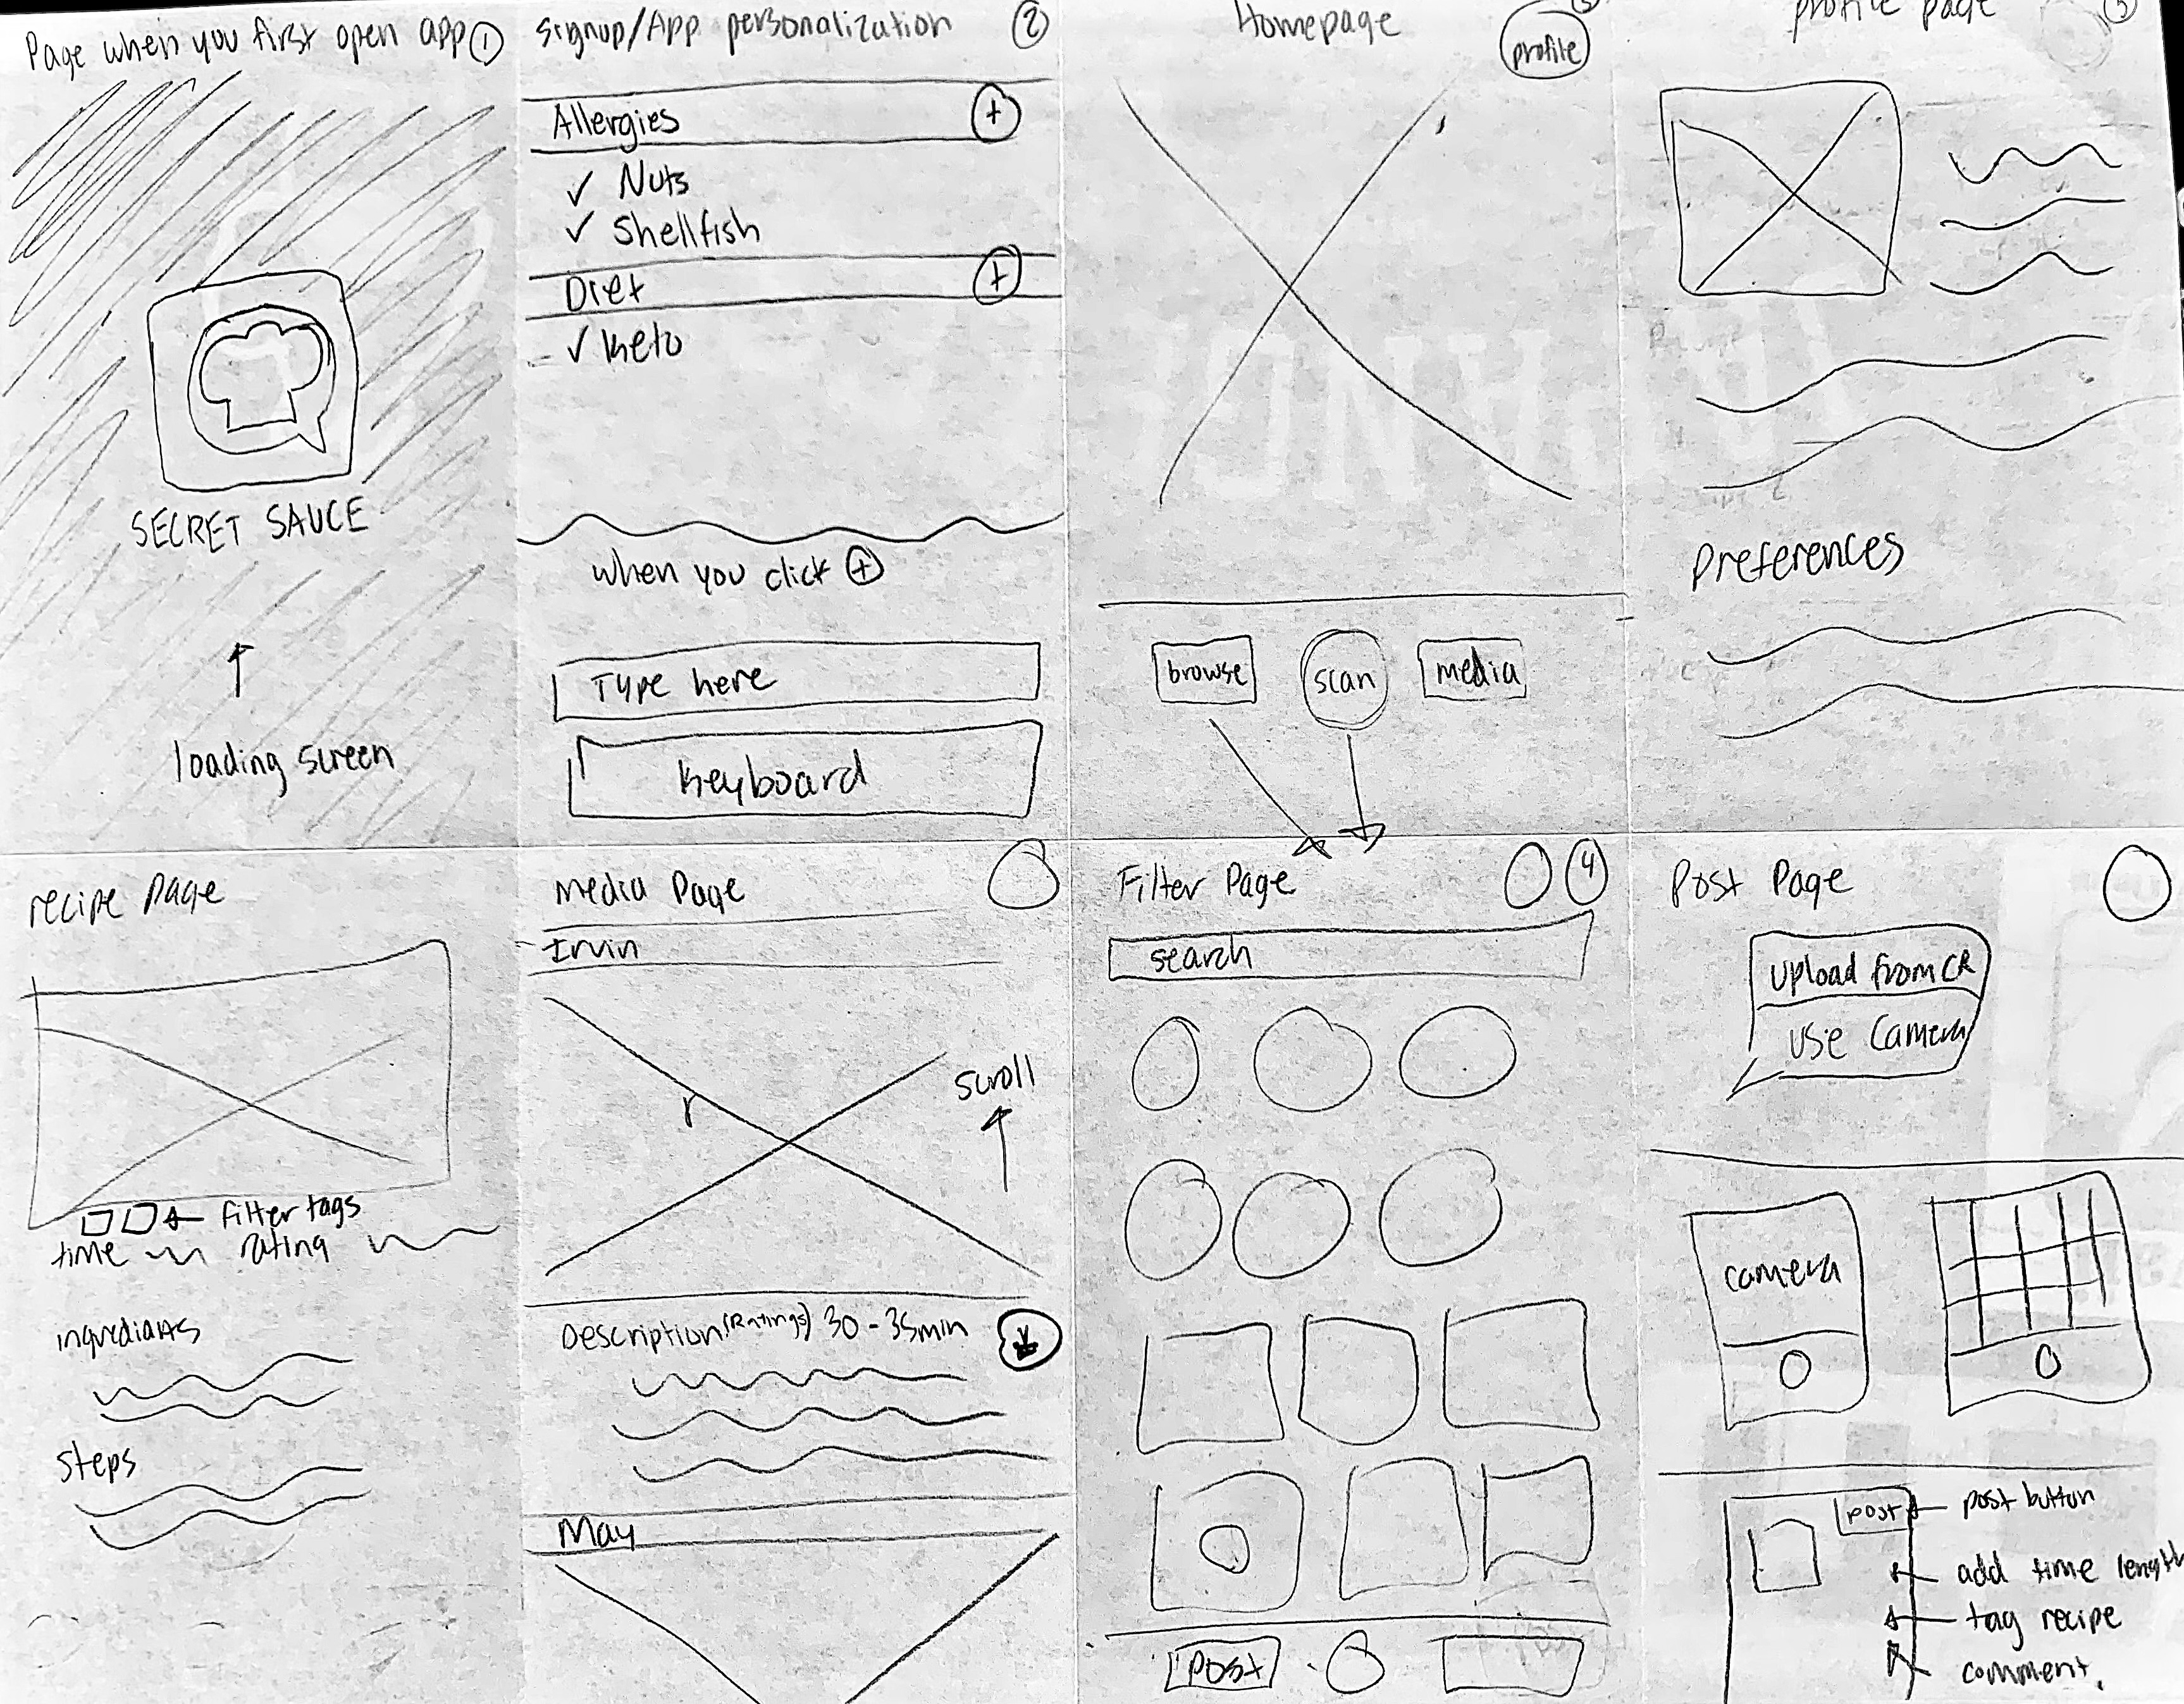 Page when you first open app 1
SECRET SAUCE
loading screen
Signup/App personalization 2
Allergies +
✓ Nuts
✓ Shellfish
Diet +
✓ Keto
when you click +
Type here
Keyboard
Homepage
profile
browse
scan
media
profile page
Preferences
recipe page
filter tags
time rating
ingrediants
Steps
Media Page
Irvin
scroll
Description (Ratings) 30-35min
May
Filter Page 4
search
POST
Post Page
Upload from CR
Use Camera
camera
post
post button
add time length
tag recipe
comment.